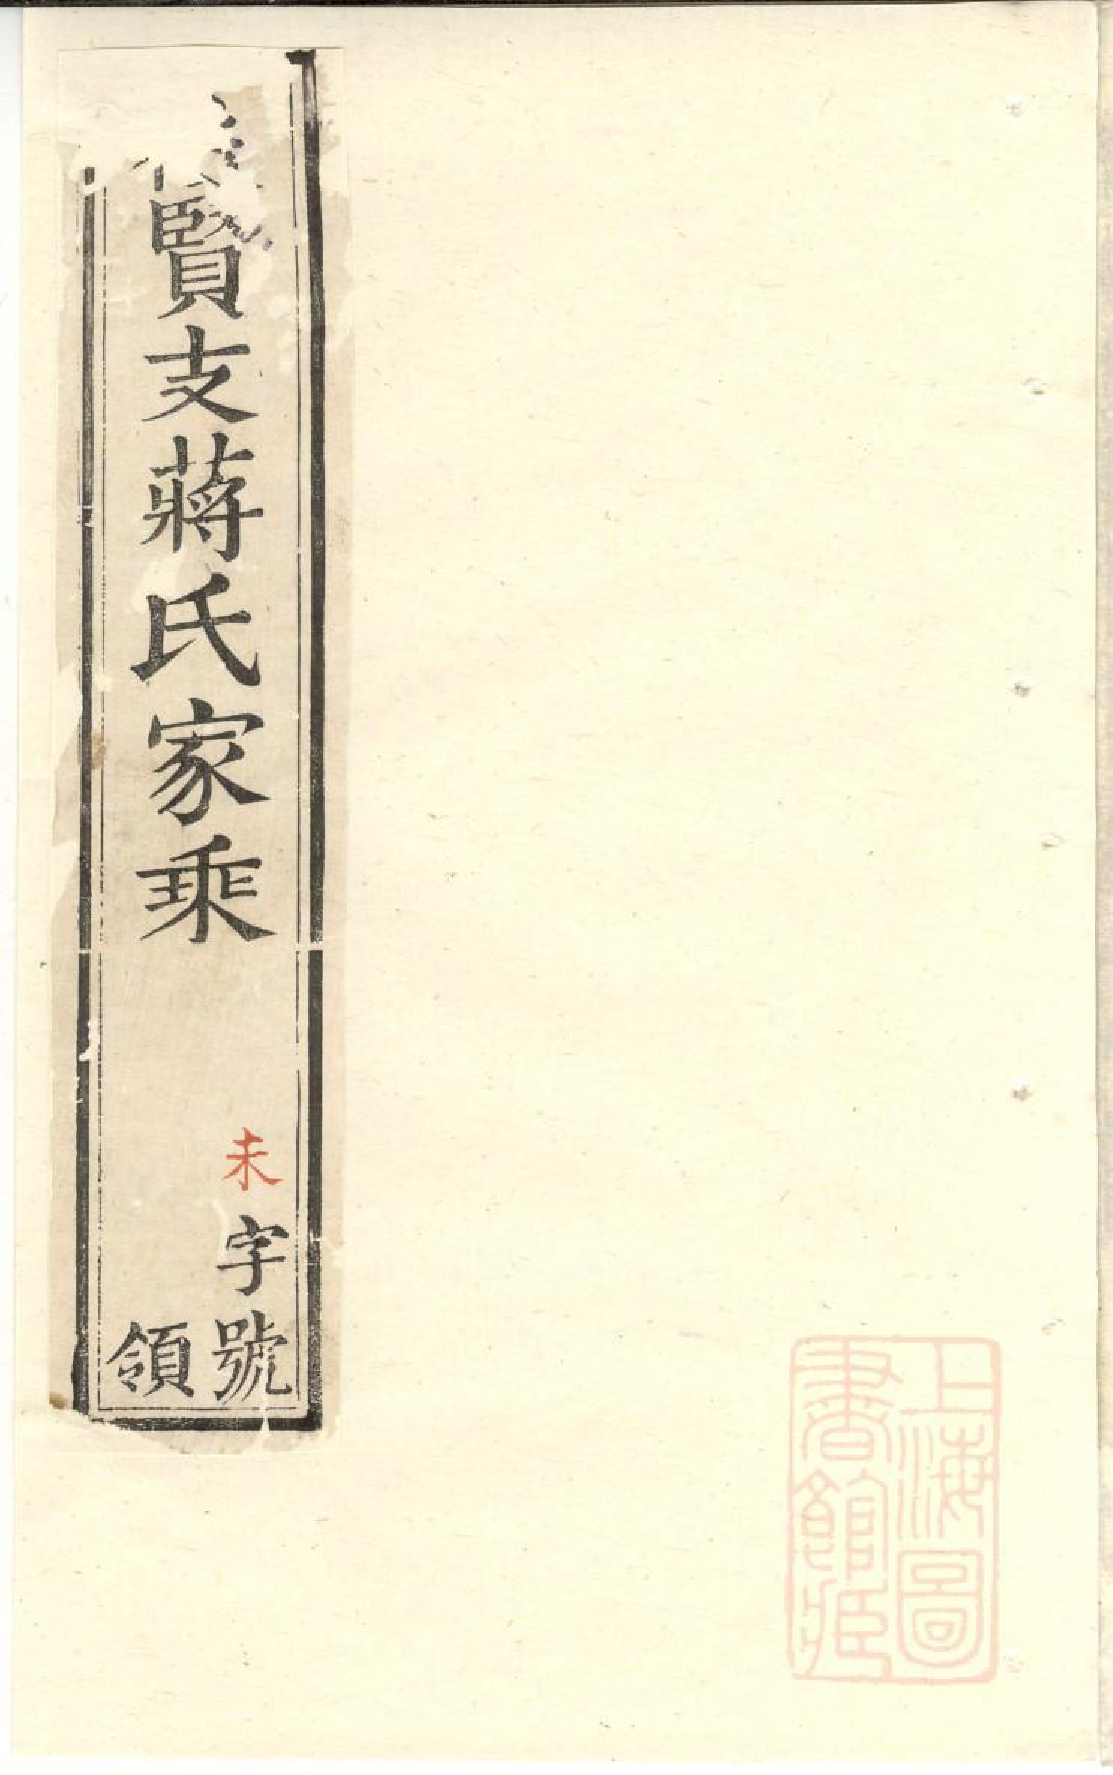 賢支蔣氏家乘
未字號
領
上海圖
書館藏